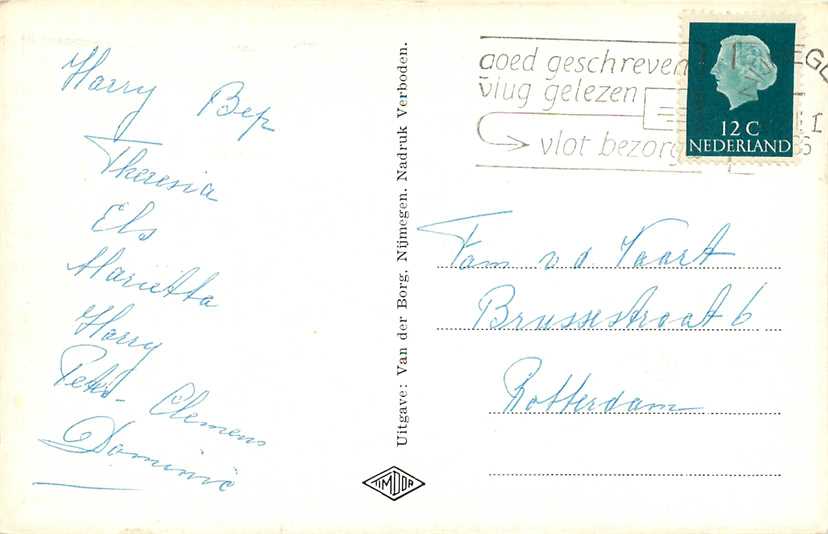 Harry Bep
Theresia
Els
Marietta
Harry
Peter - Clemens
Dominic
Uitgave: Van der Borg, Nijmegen. Nadruk Verboden.
TIMDOR
goed geschreven
vlug gelezen
vlot bezorg
12 C
NEDERLAND
Fam v d Vaart
Brussestraat 6
Rotterdam